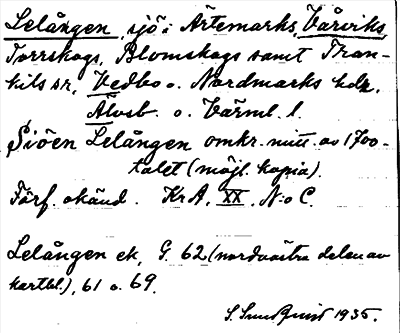 Lelången, sjö i Ärtemarks, Vårviks,
Torrskogs, Blomskogs samt Tran-
kils sr, Vedbo o. Nordmarks hdr,
Älvsb. o. Värml. l.
Sjöen Lelången omkr. mitt. av 1700-
talet (möjl. kopia).
Förf. okänd. KrA, XX, N:o C.
Lelången ek, G. 62 (nordvästra delen av
kartbl.), 61 o. 69.
S. Sundquist 1935.